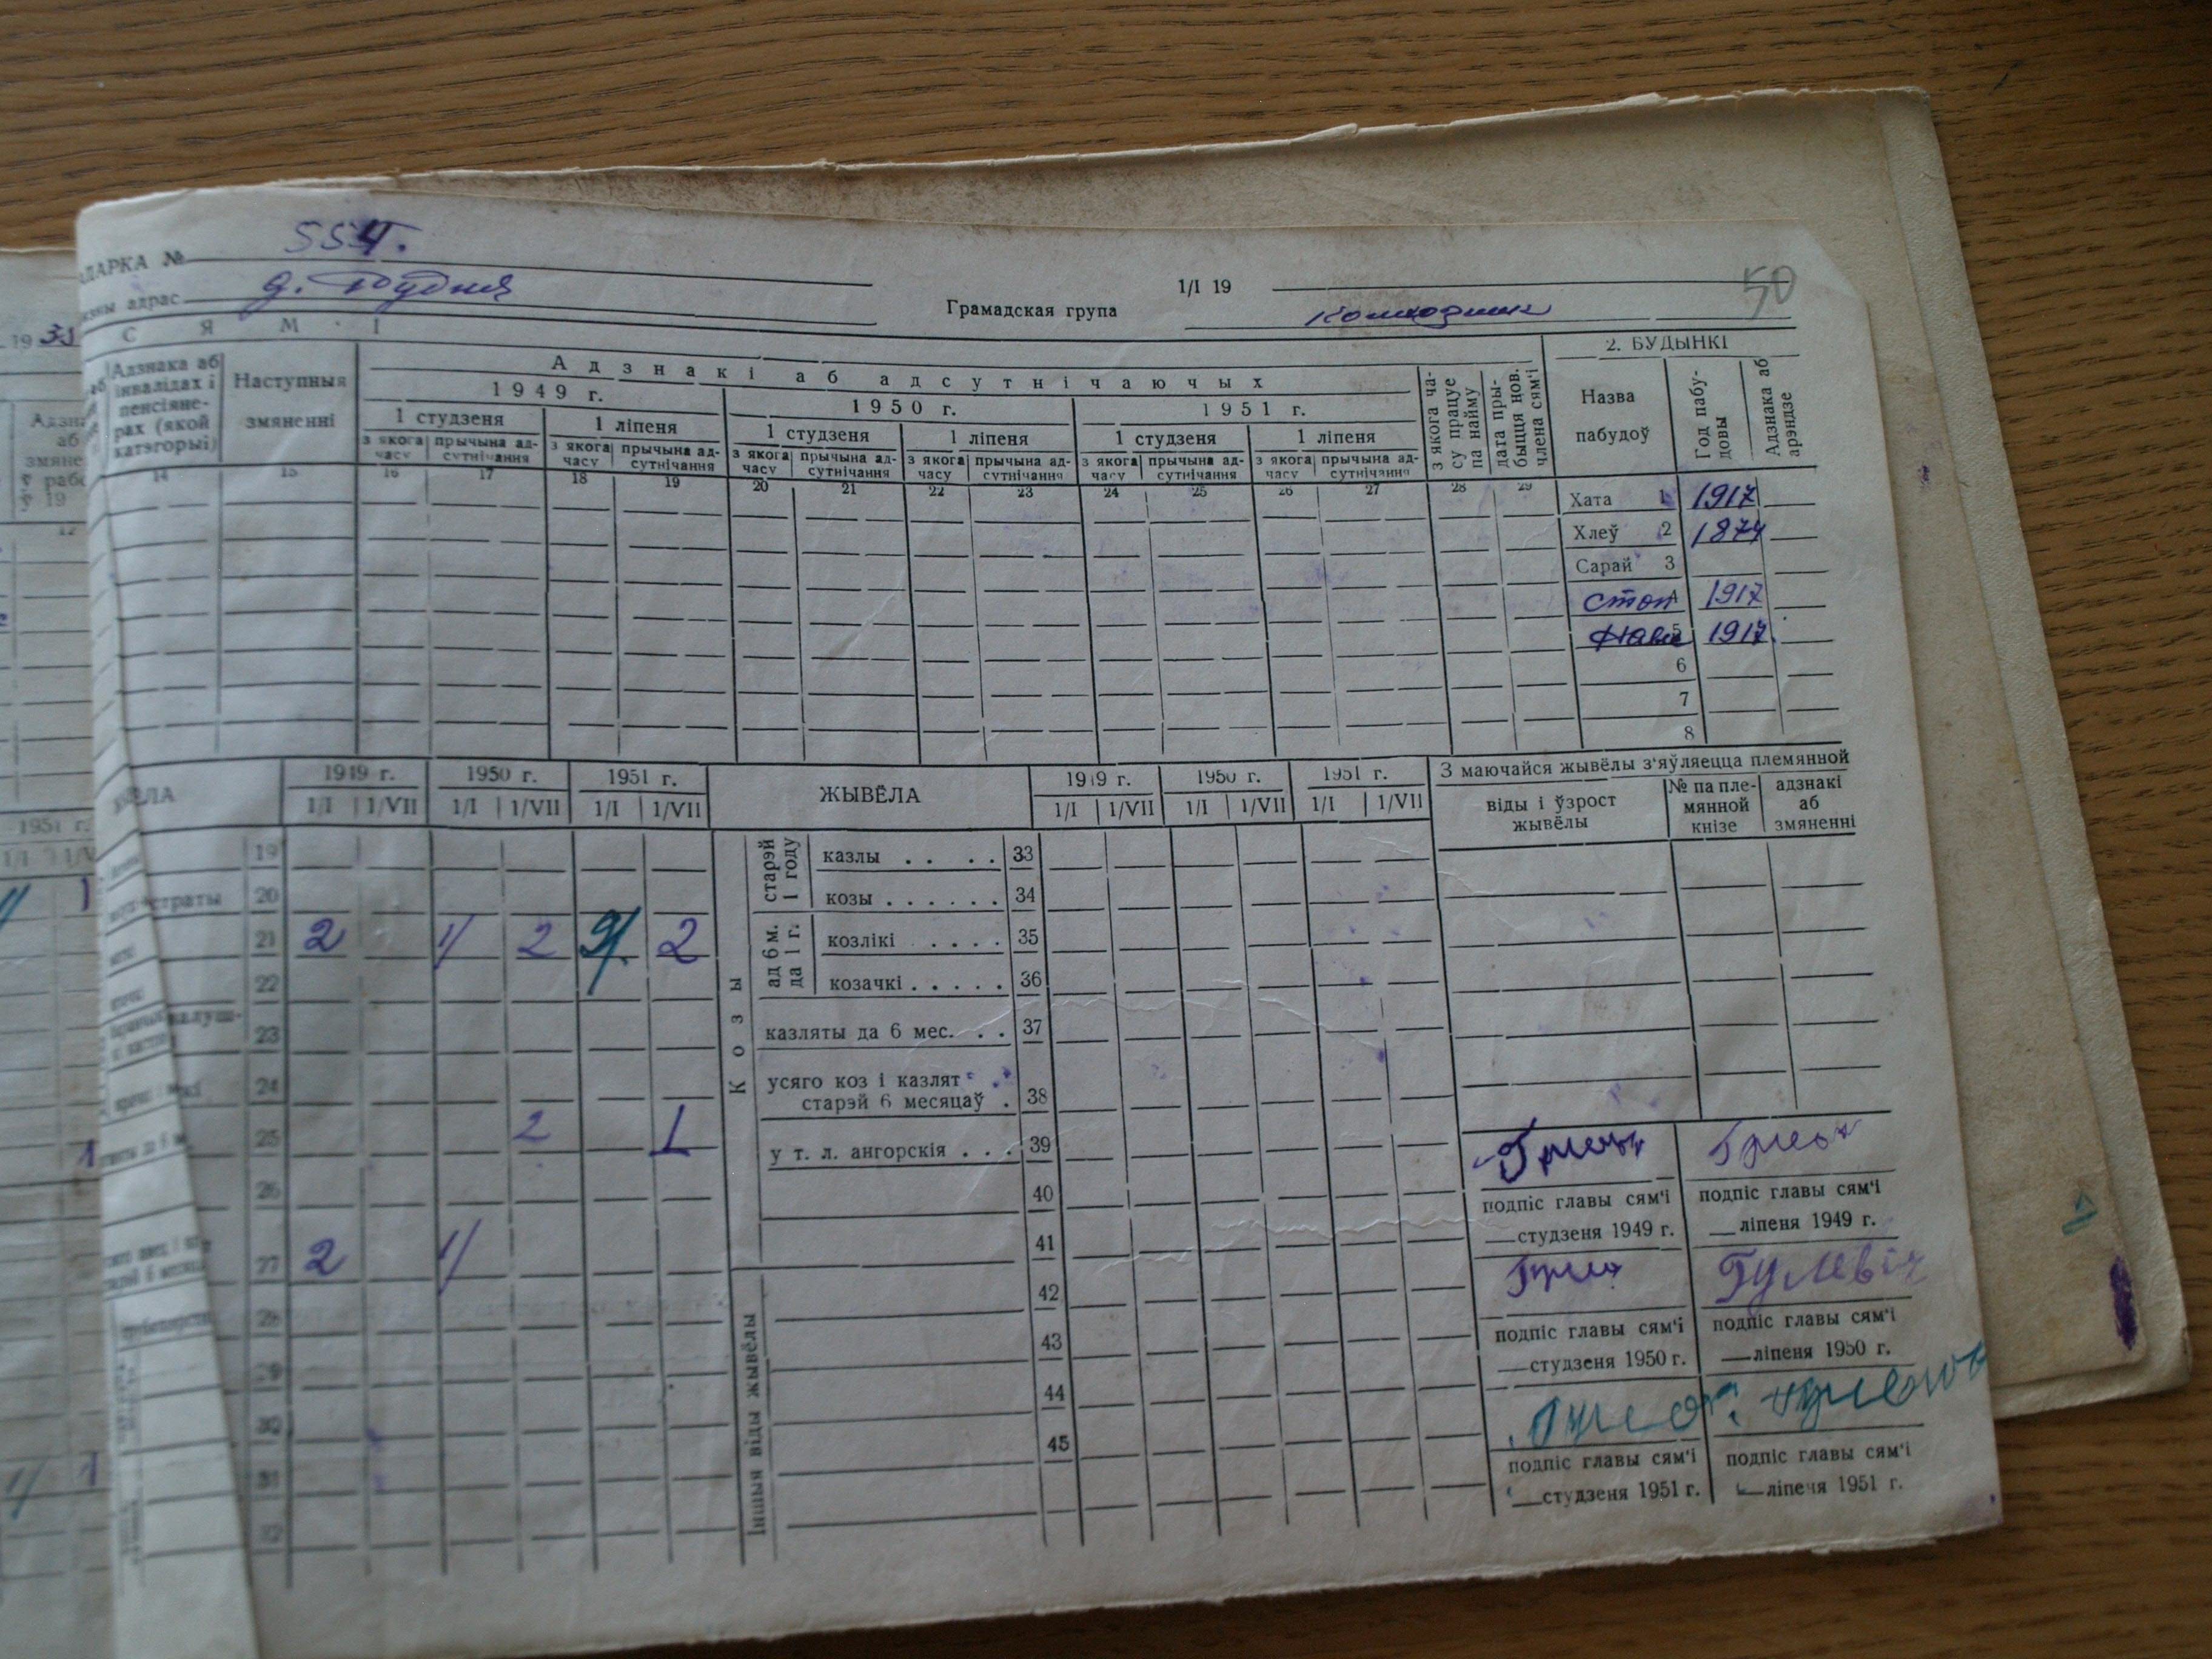 ДАРКА № 554.
адрас д. Рудня
1/I 19
50
Грамадская група колхозник
19
С Я М ' І
Адзнака аб інвалідах і пенсіянерах (якой катэгорыі)
Наступныя змяненні
Адзнакі аб адсутнічаючых
1949 г. 1950 г. 1951 г.
1 студзеня 1 ліпеня 1 студзеня 1 ліпеня 1 студзеня 1 ліпеня
з якога часу прычына адсутнічання з якога часу прычына адсутнічання з якога часу прычына адсутнічання з якога часу прычына адсутнічання з якога часу прычына адсутнічання з якога часу прычына адсутнічання
з якога часу працуе па найму
дата прыбыцця нов. члена сям'і
2. БУДЫНКІ
Назва пабудоў
Год пабудовы
Адзнака аб арэндзе
14 15 16 17 18 19 20 21 22 23 24 25 26 27 28 29
Хата 1 1917
Хлеў 2 1874
Сарай 3
стоп 4 1917
5 1917
6
7
8
1949 г. 1950 г. 1951 г.
1/I 1/VII 1/I 1/VII 1/I 1/VII
19
20
21 2 1/ 2 2/ 2
22
23
24
25 2 1
26
27 2 1/
28
29
30
31
32
ЖЫВЁЛА
1949 г. 1950 г. 1951 г.
1/I 1/VII 1/I 1/VII 1/I 1/VII
Козы
старэй 1 году
казлы . . . . 33
козы . . . . . . 34
ад 6 м. да 1 г.
козлікі . . . . 35
козачкі . . . . . 36
казляты да 6 мес. . . 37
усяго коз і казлят
старэй 6 месяцаў . 38
у т. л. ангорскія . . . 39
40
41
Іншыя віды жывёлы
42
43
44
45
З маючайся жывёлы з'яўляецца племянной
віды і ўзрост жывёлы
№ па племянной кнізе
адзнакі аб змяненні
подпіс главы сям'і
студзеня 1949 г.
подпіс главы сям'і
ліпеня 1949 г.
Гулевіч
подпіс главы сям'і
студзеня 1950 г.
подпіс главы сям'і
ліпеня 1950 г.
подпіс главы сям'і
студзеня 1951 г.
подпіс главы сям'і
ліпеня 1951 г.